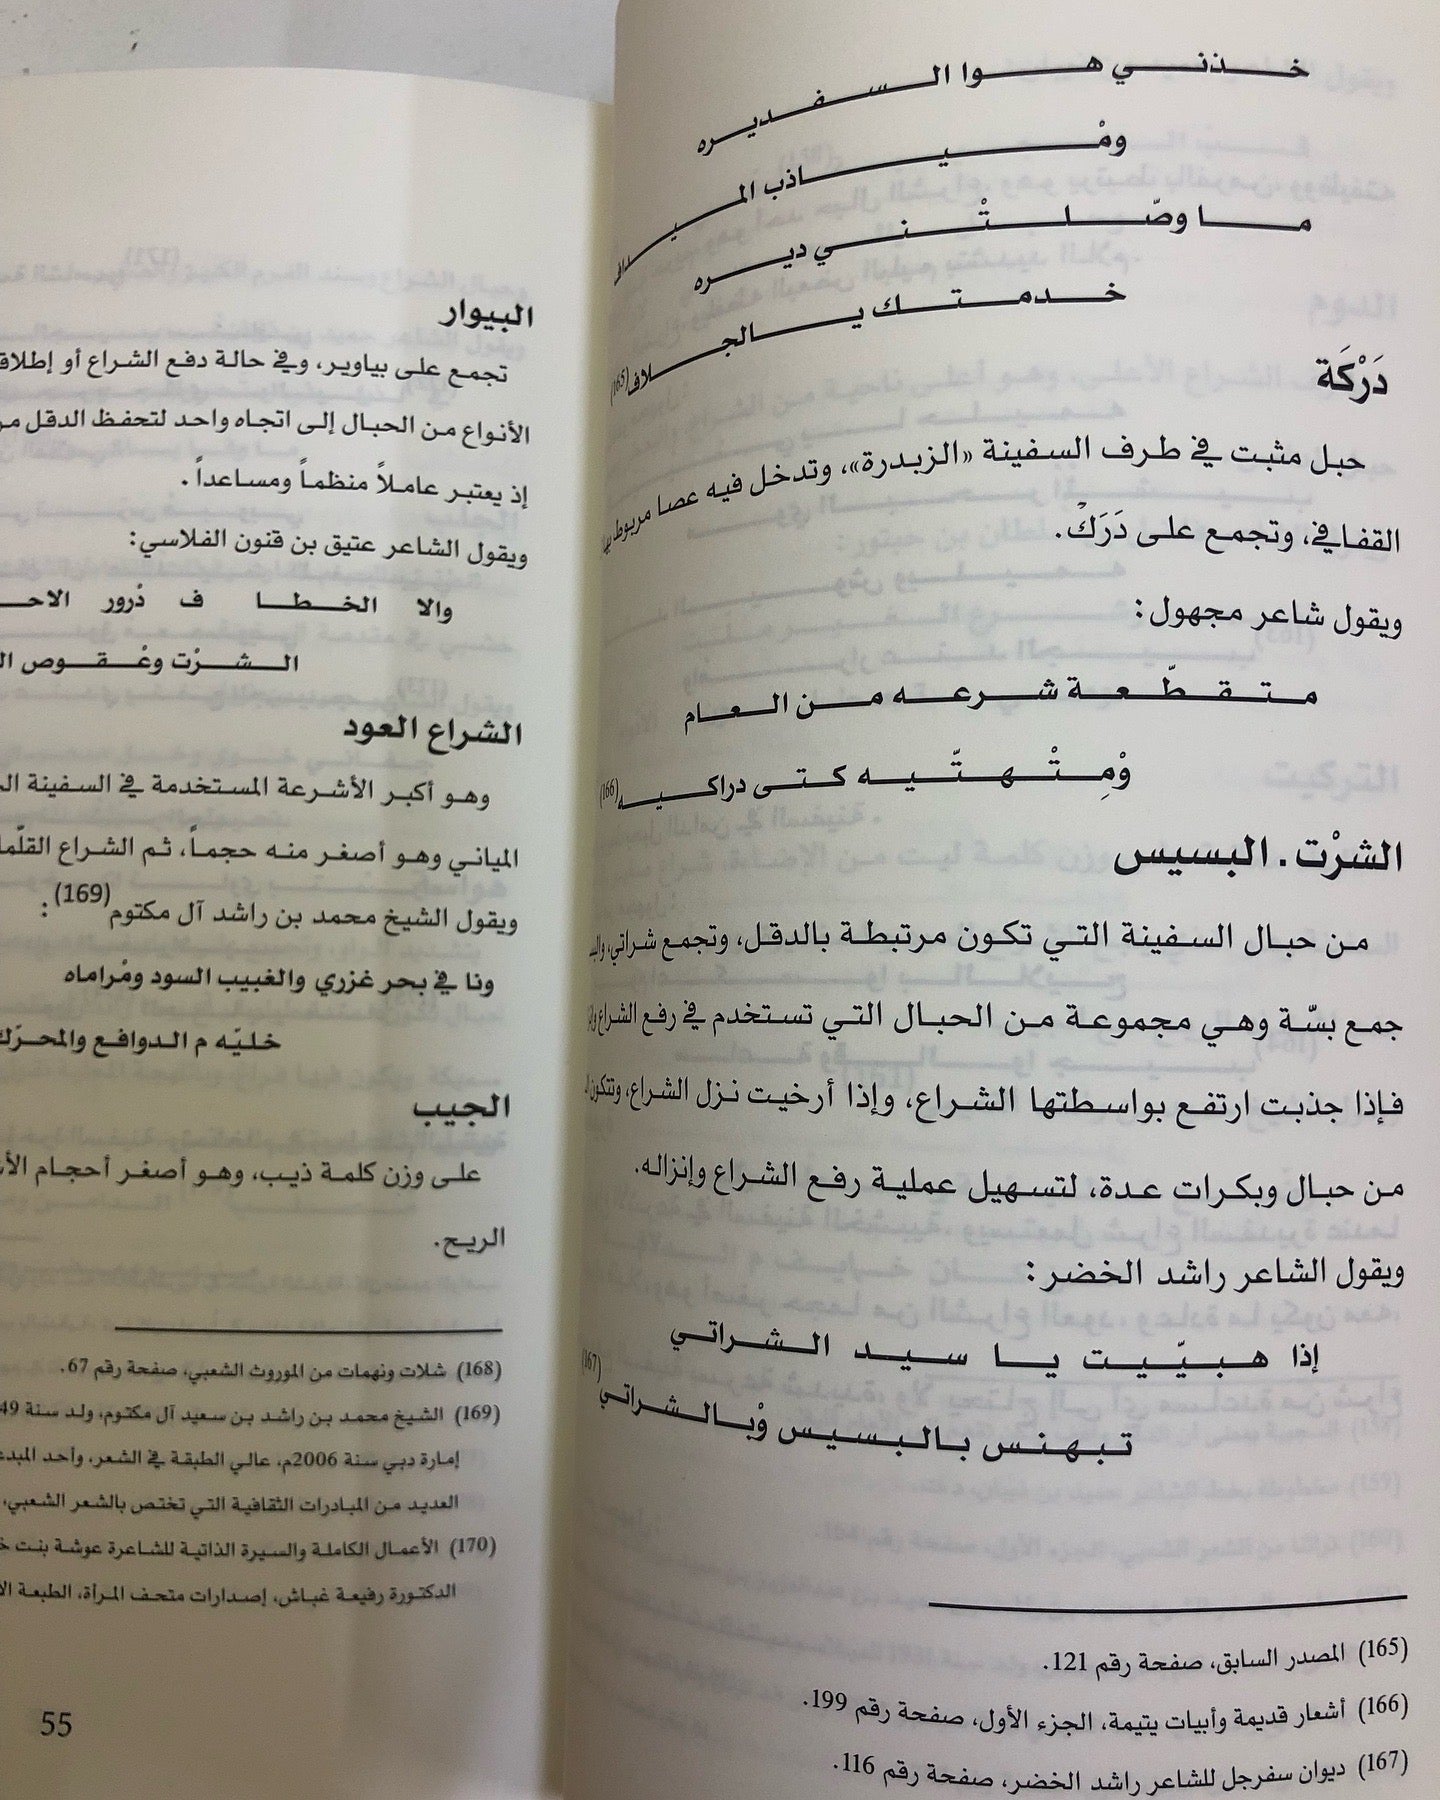 خذني هوا السفديره
ومْياذب الميداف
ما وصّلتْني ديره
خدمتك يالجلاف (165)
دَرْكَة
حبل مثبت في طرف السفينة «الزبدرة»، وتدخل فيه عصا مربوط بها
القفافي، وتجمع على دَرَكْ.
ويقول شاعر مجهول:
متقطّعة شرعه من العام
وْمِتْهتّيه كتى دراكيه (166)
الشرْت . البسيس
من حبال السفينة التي تكون مرتبطة بالدقل، وتجمع شراتي،
جمع بسّة وهي مجموعة من الحبال التي تستخدم في رفع الشراع
فإذا جذبت ارتفع بواسطتها الشراع، وإذا أرخيت نزل الشراع، وتتكون
من حبال وبكرات عدة، لتسهيل عملية رفع الشراع وإنزاله.
ويقول الشاعر راشد الخضر:
إذا هبيّيت يا سيد الشراتي
تبهنس بالبسيس وْبالشراتي (167)
(165) المصدر السابق، صفحة رقم 121.
(166) أشعار قديمة وأبيات يتيمة، الجزء الأول، صفحة رقم 199.
(167) ديوان سفرجل للشاعر راشد الخضر، صفحة رقم 116.
البيوار
تجمع على بياوير، وفي حالة دفع الشراع أو
الأنواع من الحبال إلى اتجاه واحد لتحفظ الدقل
إذ يعتبر عاملاً منظماً ومساعداً .
ويقول الشاعر عتيق بن قنون الفلاسي:
والا الخطا ف ذرور
الشرْت وعْقوص
الشراع العود
وهو أكبر الأشرعة المستخدمة في السفينة
المياني وهو أصغر منه حجماً، ثم الشراع
ويقول الشيخ محمد بن راشد آل مكتوم(169):
ونا في بحر غزري والغبيب السود ومْراماه
خليّه م الدوافع
الجيب
على وزن كلمة ذيب، وهو أصغر أحجام
الريح.
(168) شلات ونهمات من الموروث الشعبي، صفحة رقم 67.
(169) الشيخ محمد بن راشد بن سعيد آل مكتوم، ولد سنة
إمارة دبي سنة 2006م، عالي الطبقة في الشعر، وأحد
العديد من المبادرات الثقافية التي تختص بالشعر الشعبي،
(170) الأعمال الكاملة والسيرة الذاتية للشاعرة عوشة بنت
الدكتورة رفيعة غباش، إصدارات متحف المرأة، الطبعة
55